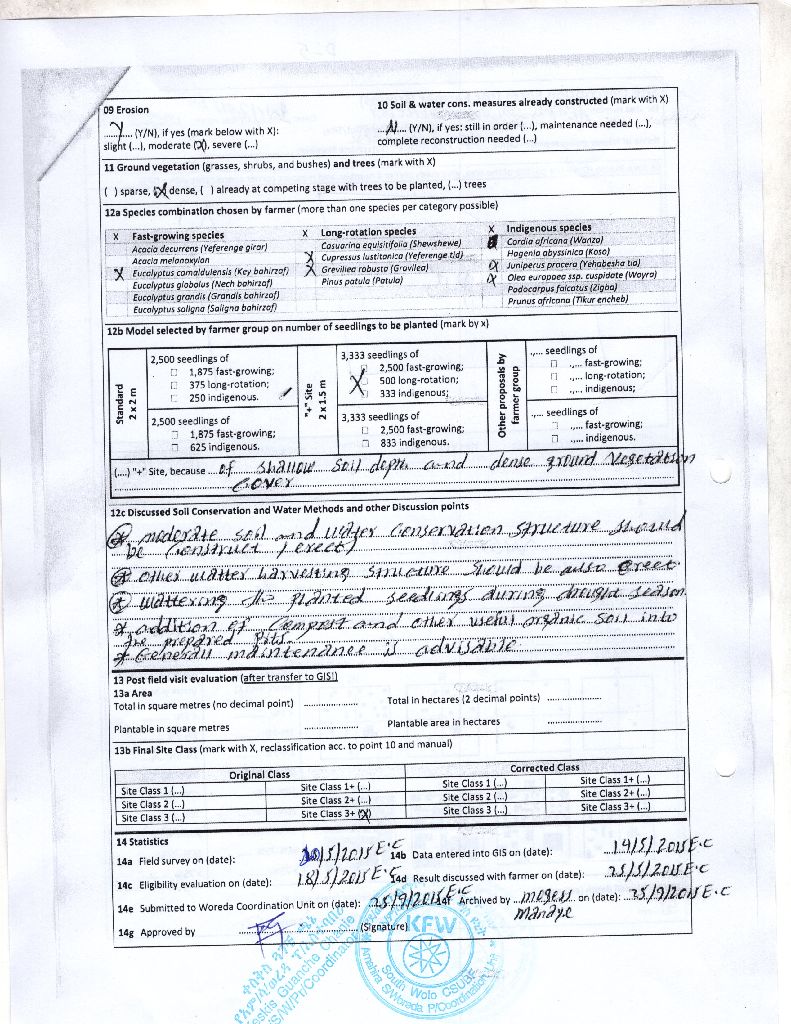 09 Erosion
10 Soil & water cons. measures already constructed (mark with X)
..Y... (Y/N), if yes (mark below with X):
slight (...), moderate (X), severe (...)
..N... (Y/N), if yes: still in order (...), maintenance needed (...),
complete reconstruction needed (...)
11 Ground vegetation (grasses, shrubs, and bushes) and trees (mark with X)
( ) sparse, (X) dense, ( ) already at competing stage with trees to be planted, (...) trees
12a Species combination chosen by farmer (more than one species per category possible)
X Fast-growing species
Acacia decurrens (Yeferenge girar)
Acacia melanoxylan
X Eucalyptus camaldulensis (Key bahirzaf)
Eucalyptus globolus (Nech bahirzaf)
Eucalyptus grandis (Grandis bahirzaf)
Eucalyptus saligna (Saligna bahirzaf)
X Long-rotation species
Casuarina equisitifolia (Shewshewe)
X Cupressus lustitanica (Yeferenge tid)
X Grevillea robusta (Gravilea)
Pinus patula (Patula)
X Indigenous species
Cordia africana (Wanza)
Hagenia abyssinica (Koso)
X Juniperus procera (Yehabesha tid)
X Olea europaea ssp. cuspidate (Woyra)
Podocarpus falcatus (Zigba)
Prunus africana (Tikur encheb)
12b Model selected by farmer group on number of seedlings to be planted (mark by x)
Standard
2 x 2 m
2,500 seedlings of
1,875 fast-growing;
375 long-rotation;
250 indigenous.
2,500 seedlings of
1,875 fast-growing;
625 indigenous.
"+" Site
2 x 1.5 m
3,333 seedlings of
X 2,500 fast-growing;
500 long-rotation;
333 indigenous;
3,333 seedlings of
2,500 fast-growing;
833 indigenous.
Other proposals by
farmer group
.,... seedlings of
.,... fast-growing;
.,... long-rotation;
.,... indigenous;
.,... seedlings of
.,... fast-growing;
.,... indigenous.
(....) "+" Site, because ...of shallow soil depth and dense ground Vegetation
Cover
12c Discussed Soil Conservation and Water Methods and other Discussion points
* moderate soil and water Conservation structure should
be Construct (erect)
* other watter harvesting structure should be auso erect
* wattering the planted seedlings during drought season
* addition of Compost and other useful organic soil into
the prepared Pits
* Generall maintenance is advisable
13 Post field visit evaluation (after transfer to GIS!)
13a Area
Total in square metres (no decimal point) ..................
Total in hectares (2 decimal points) ..................
Plantable in square metres ..................
Plantable area in hectares ..................
13b Final Site Class (mark with X, reclassification acc. to point 10 and manual)
Original Class
Corrected Class
Site Class 1 (...) Site Class 1+ (...) Site Class 1 (...) Site Class 1+ (...)
Site Class 2 (...) Site Class 2+ (...) Site Class 2 (...) Site Class 2+ (...)
Site Class 3 (...) Site Class 3+ (X) Site Class 3 (...) Site Class 3+ (...)
14 Statistics
14a Field survey on (date): 10/5/2015 E.C
14b Data entered into GIS on (date): 14/5/2015 E.C
14c Eligibility evaluation on (date): 18/5/2015 E.C
14d Result discussed with farmer on (date): 25/5/2015 E.C
14e Submitted to Woreda Coordination Unit on (date): 25/9/2015 E.C
14f Archived by mogess
Mandye
on (date): 25/9/2015 E.C
14g Approved by .................. (Signature)
KFW
South Wolo CSUBF
Amehara S/Woreda P/Coordination Unit